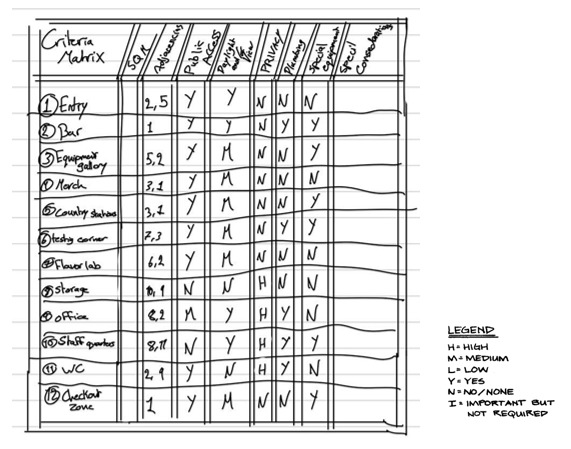 Criteria Matrix
SQM Adjacencies Public ACCESS Daylight and/or View PRIVACY Plumbing Special equipment Special Considerations
① Entry 2,5 Y Y N N N
② Bar 1 Y Y N Y Y
③ Equipment gallery 5,2 Y M N N Y
④ Merch 3,1 Y M N N N
⑤ Country stations 3,1 Y M N N Y
⑥ testing corner 7,3 Y M N Y Y
⑦ Flavor lab 6,2 Y M N N N
⑧ Storage 10,9 N N H N N
⑨ office 8,2 M Y H Y N
⑩ Staff quarters 8,11 N Y H Y Y
⑪ WC 2,9 Y N H Y N
⑫ Checkout zone 1 Y M N N Y
LEGEND
H = HIGH
M = MEDIUM
L = LOW
Y = YES
N = NO/NONE
I = IMPORTANT BUT
NOT REQUIRED